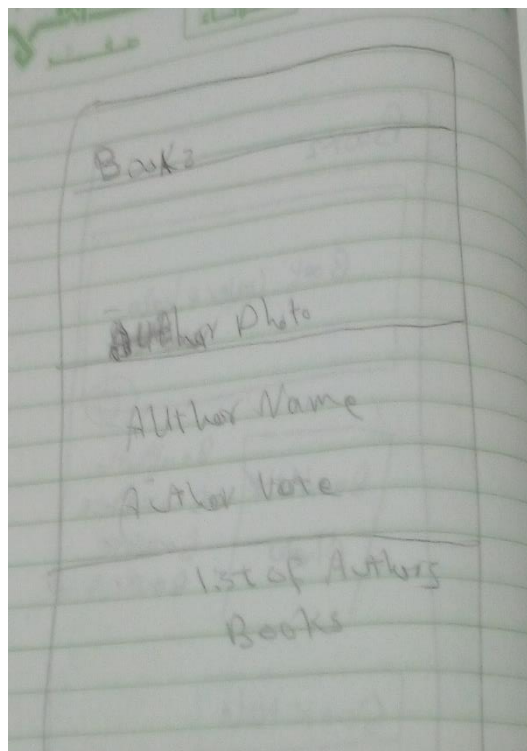 Books
Author Photo
Author Name
Author Vote
List of Authors
Books